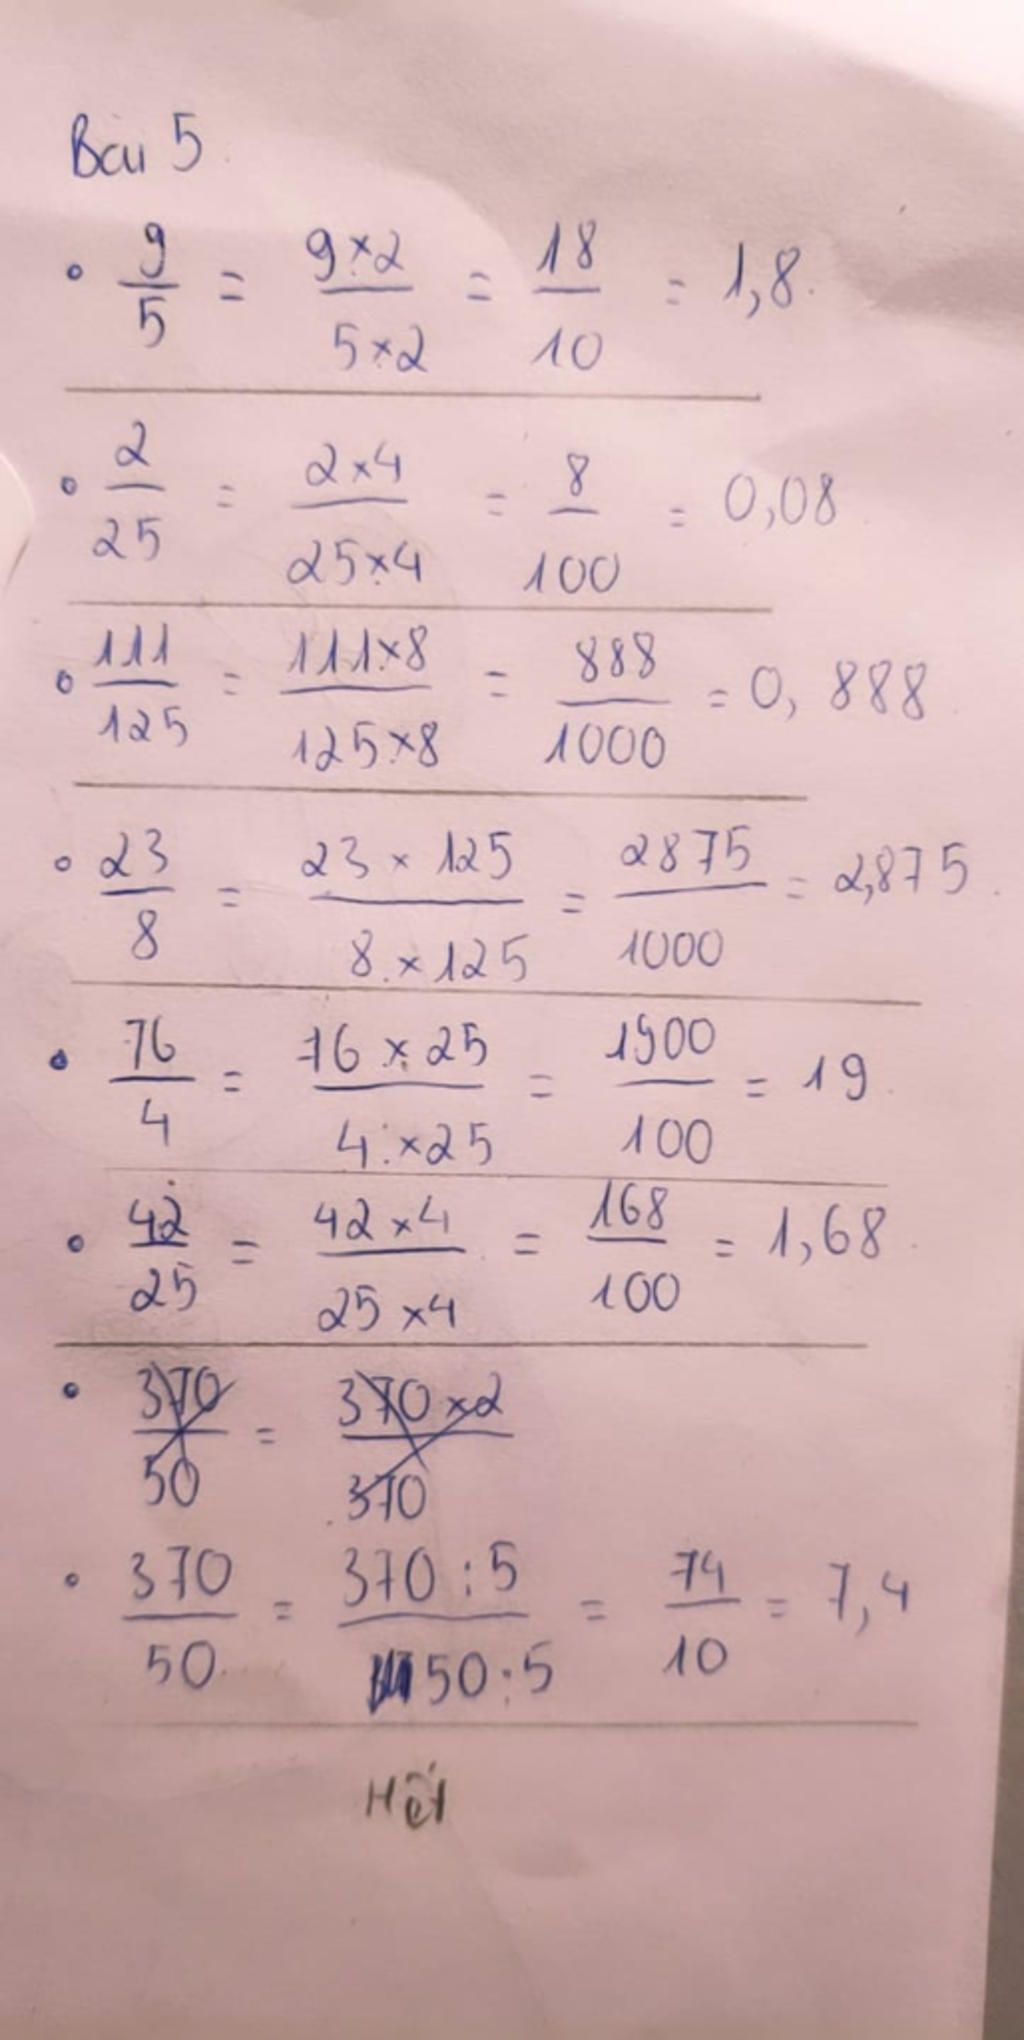 Bài 5
• 9/5 = 9×2/5×2 = 18/10 = 1,8.
• 2/25 = 2×4/25×4 = 8/100 = 0,08
• 111/125 = 111×8/125×8 = 888/1000 = 0,888
• 23/8 = 23×125/8×125 = 2875/1000 = 2,875
• 76/4 = 76×25/4×25 = 1900/100 = 19
• 42/25 = 42×4/25×4 = 168/100 = 1,68
• 370/50 = 370×2/370
• 370/50 = 370:5/50:5 = 74/10 = 7,4
Hết